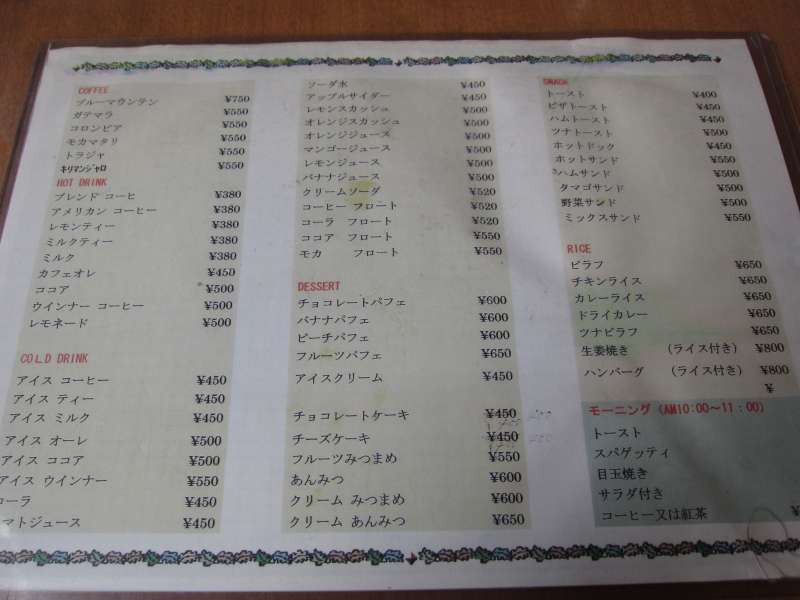 COFFEE
ブルーマウンテン ¥750
ガテマラ ¥550
コロンビア ¥550
モカマタリ ¥550
トラジャ ¥550
キリマンジャロ ¥550
HOT DRINK
ブレンド コーヒ ¥380
アメリカン コーヒー ¥380
レモンティー ¥380
ミルクティー ¥380
ミルク ¥380
カフェオレ ¥450
ココア ¥500
ウインナー コーヒー ¥500
レモネード ¥500
COLD DRINK
アイス コーヒー ¥450
アイス ティー ¥450
アイス ミルク ¥450
アイス オーレ ¥500
アイス ココア ¥500
アイス ウインナー ¥550
コーラ ¥450
マトジュース ¥450
ソーダ水 ¥450
アップルサイダー ¥450
レモンスカッシュ ¥500
オレンジスカッシュ ¥500
オレンジジュース ¥500
マンゴージュース ¥500
レモンジュース ¥500
バナナジュース ¥500
クリームソーダ ¥520
コーヒー フロート ¥520
コーラ フロート ¥520
ココア フロート ¥550
モカ フロート ¥550
DESSERT
チョコレートパフェ ¥600
バナナパフェ ¥600
ピーチパフェ ¥600
フルーツパフェ ¥650
アイスクリーム ¥450
チョコレートケーキ ¥450
チーズケーキ ¥450
フルーツみつまめ ¥550
あんみつ ¥600
クリーム みつまめ ¥600
クリーム あんみつ ¥650
SNACK
トースト ¥400
ピザトースト ¥450
ハムトースト ¥450
ツナトースト ¥500
ホットドック ¥450
ホットサンド ¥550
ハムサンド ¥500
タマゴサンド ¥500
野菜サンド ¥500
ミックスサンド ¥550
RICE
ピラフ ¥650
チキンライス ¥650
カレーライス ¥650
ドライカレー ¥650
ツナピラフ ¥650
生姜焼き (ライス付き) ¥800
ハンバーグ (ライス付き) ¥800
¥
モーニング (AM10:00～11:00)
トースト
スパゲッティ
目玉焼き
サラダ付き
コーヒー又は紅茶 ¥